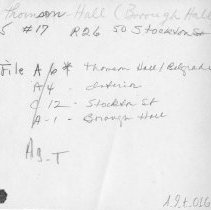 Thomson Hall (Borough Hall
5 #17 R26 50 Stockton St
File A/o * Thomson Hall/Belgrade
A/4 - Interior
C/12 - Stockton St
A-1 - Borough Hall
A9-T